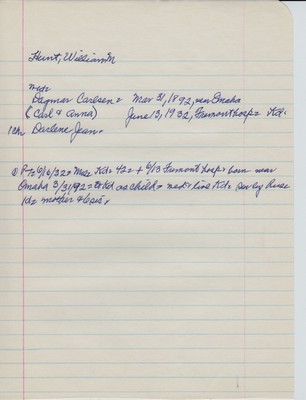 Hunt, William M
md=
Dagmar Carlsen = Mar 31, 1892, nr Omaha
(Carl & Anna) June 13, 1932, Fremont hosp = Kd=
1 ch Darlene Jean.
P-T= 6/16/32 = Mrs. Kd= 42 = + 6/13 Fremont hosp = born near
Omaha 3/31/92 = to Kd as child = md = live Kd= surv by
Kd= mother &